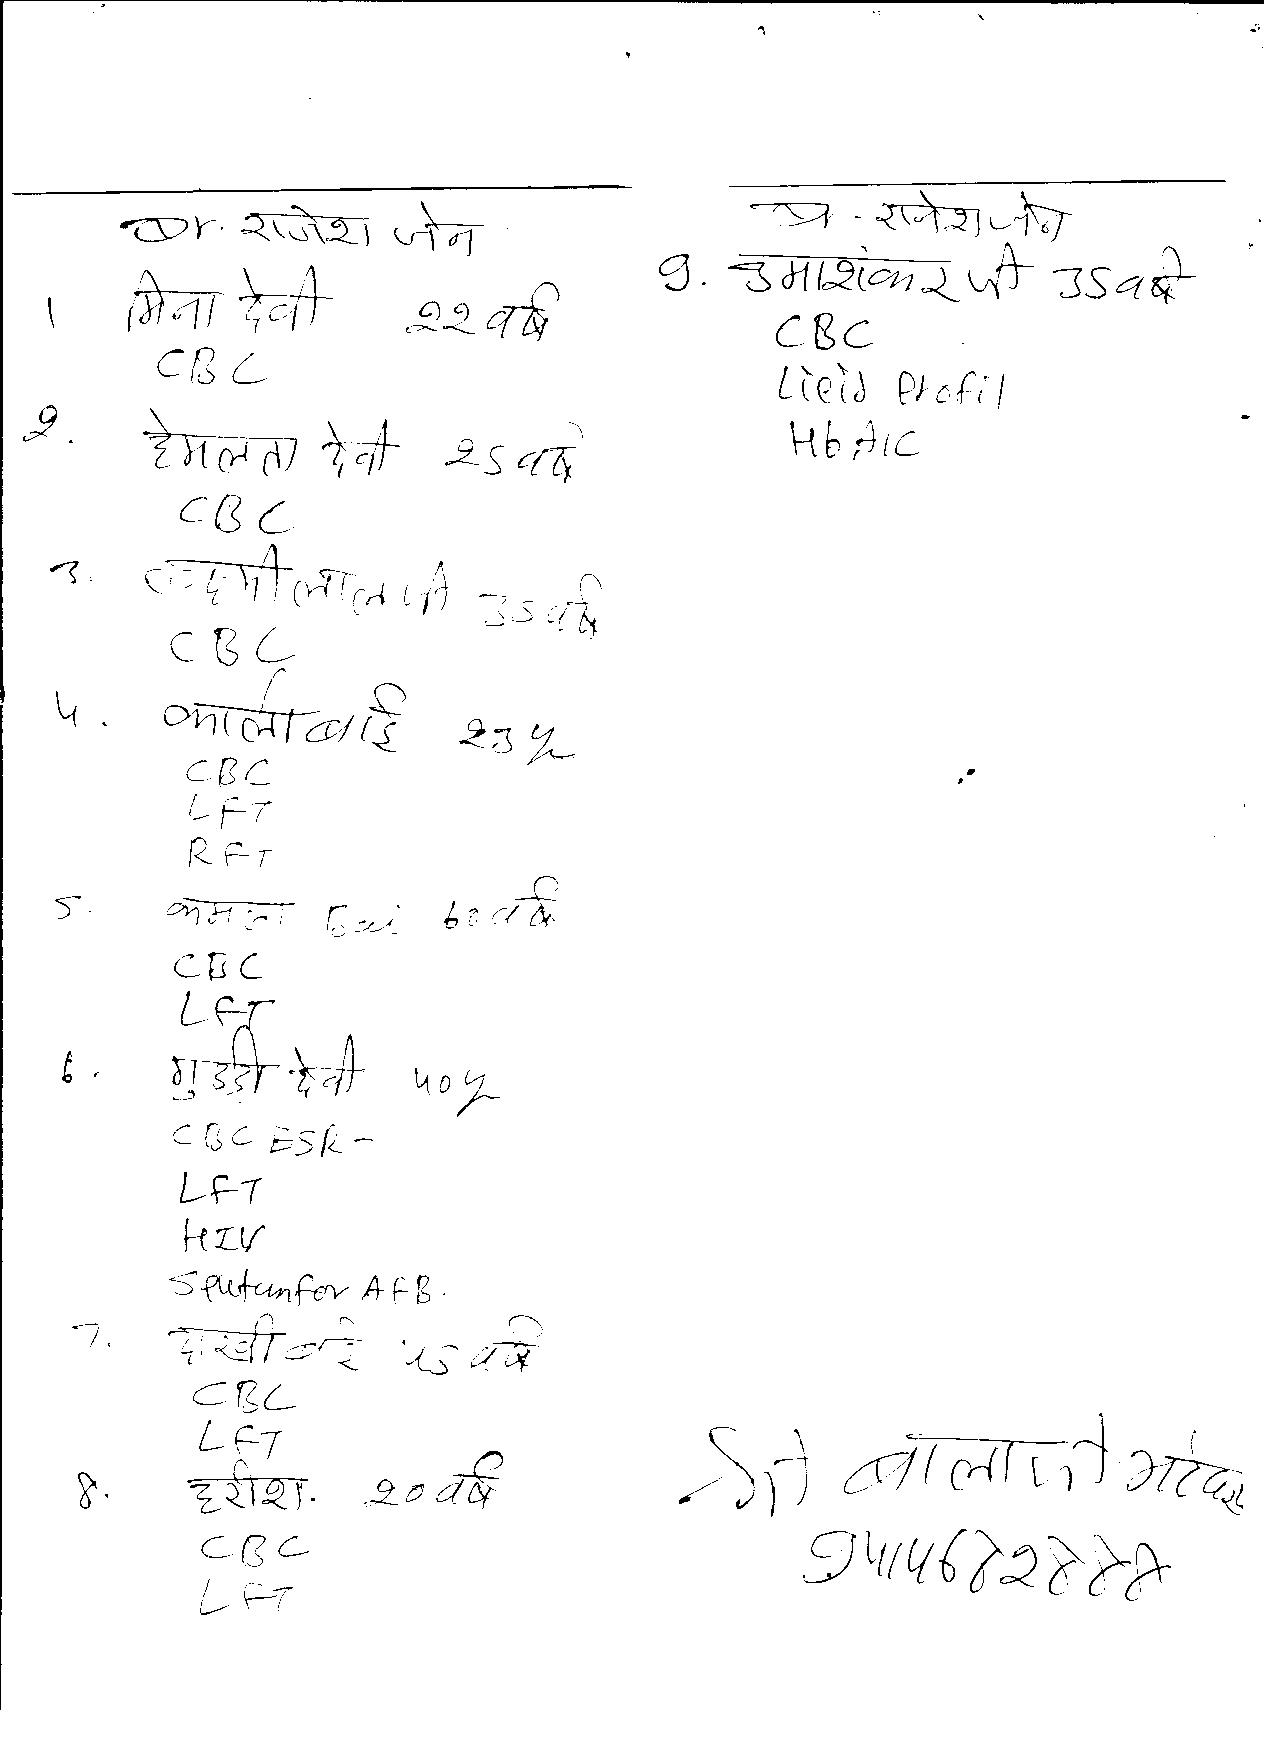 Dr. राजेश जेन
1 मिना देवी 22 वर्ष
CBC
2. हेमलता देवी 25 वर्ष
CBC
3. लक्ष्मीलाल जी 35 वर्ष
CBC
4. काली बाई 23 y
CBC
LFT
RFT
5. कमला bai 60 वर्ष
CBC
LFT
6. गुड्डी देवी 40 y
CBC ESR -
LFT
HIV
Sputum for AFB.
7. दाखी बाई 45 वर्ष
CBC
LFT
8. हरीश. 20 वर्ष
CBC
LFT
Dr. राजेश जेन
9. उमाशंकर जी 35 वर्ष
CBC
Lipid Profil
HbA1C
श्री बालाजी